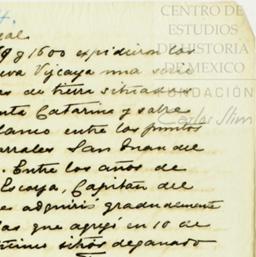 CENTRO DE
ESTUDIOS
DE HISTORIA
DE MEXICO
FUNDACIÓN
Carlos Slim
1600 expidieron los
Viscaya una serie
de tierra situadas
Catarina y sobre
blanco entre los puntos
San Juan del
. Entre los años de
Escaya, Capitán del
adquirió gradualmente
que agregó en 10 de
sitios de ganado